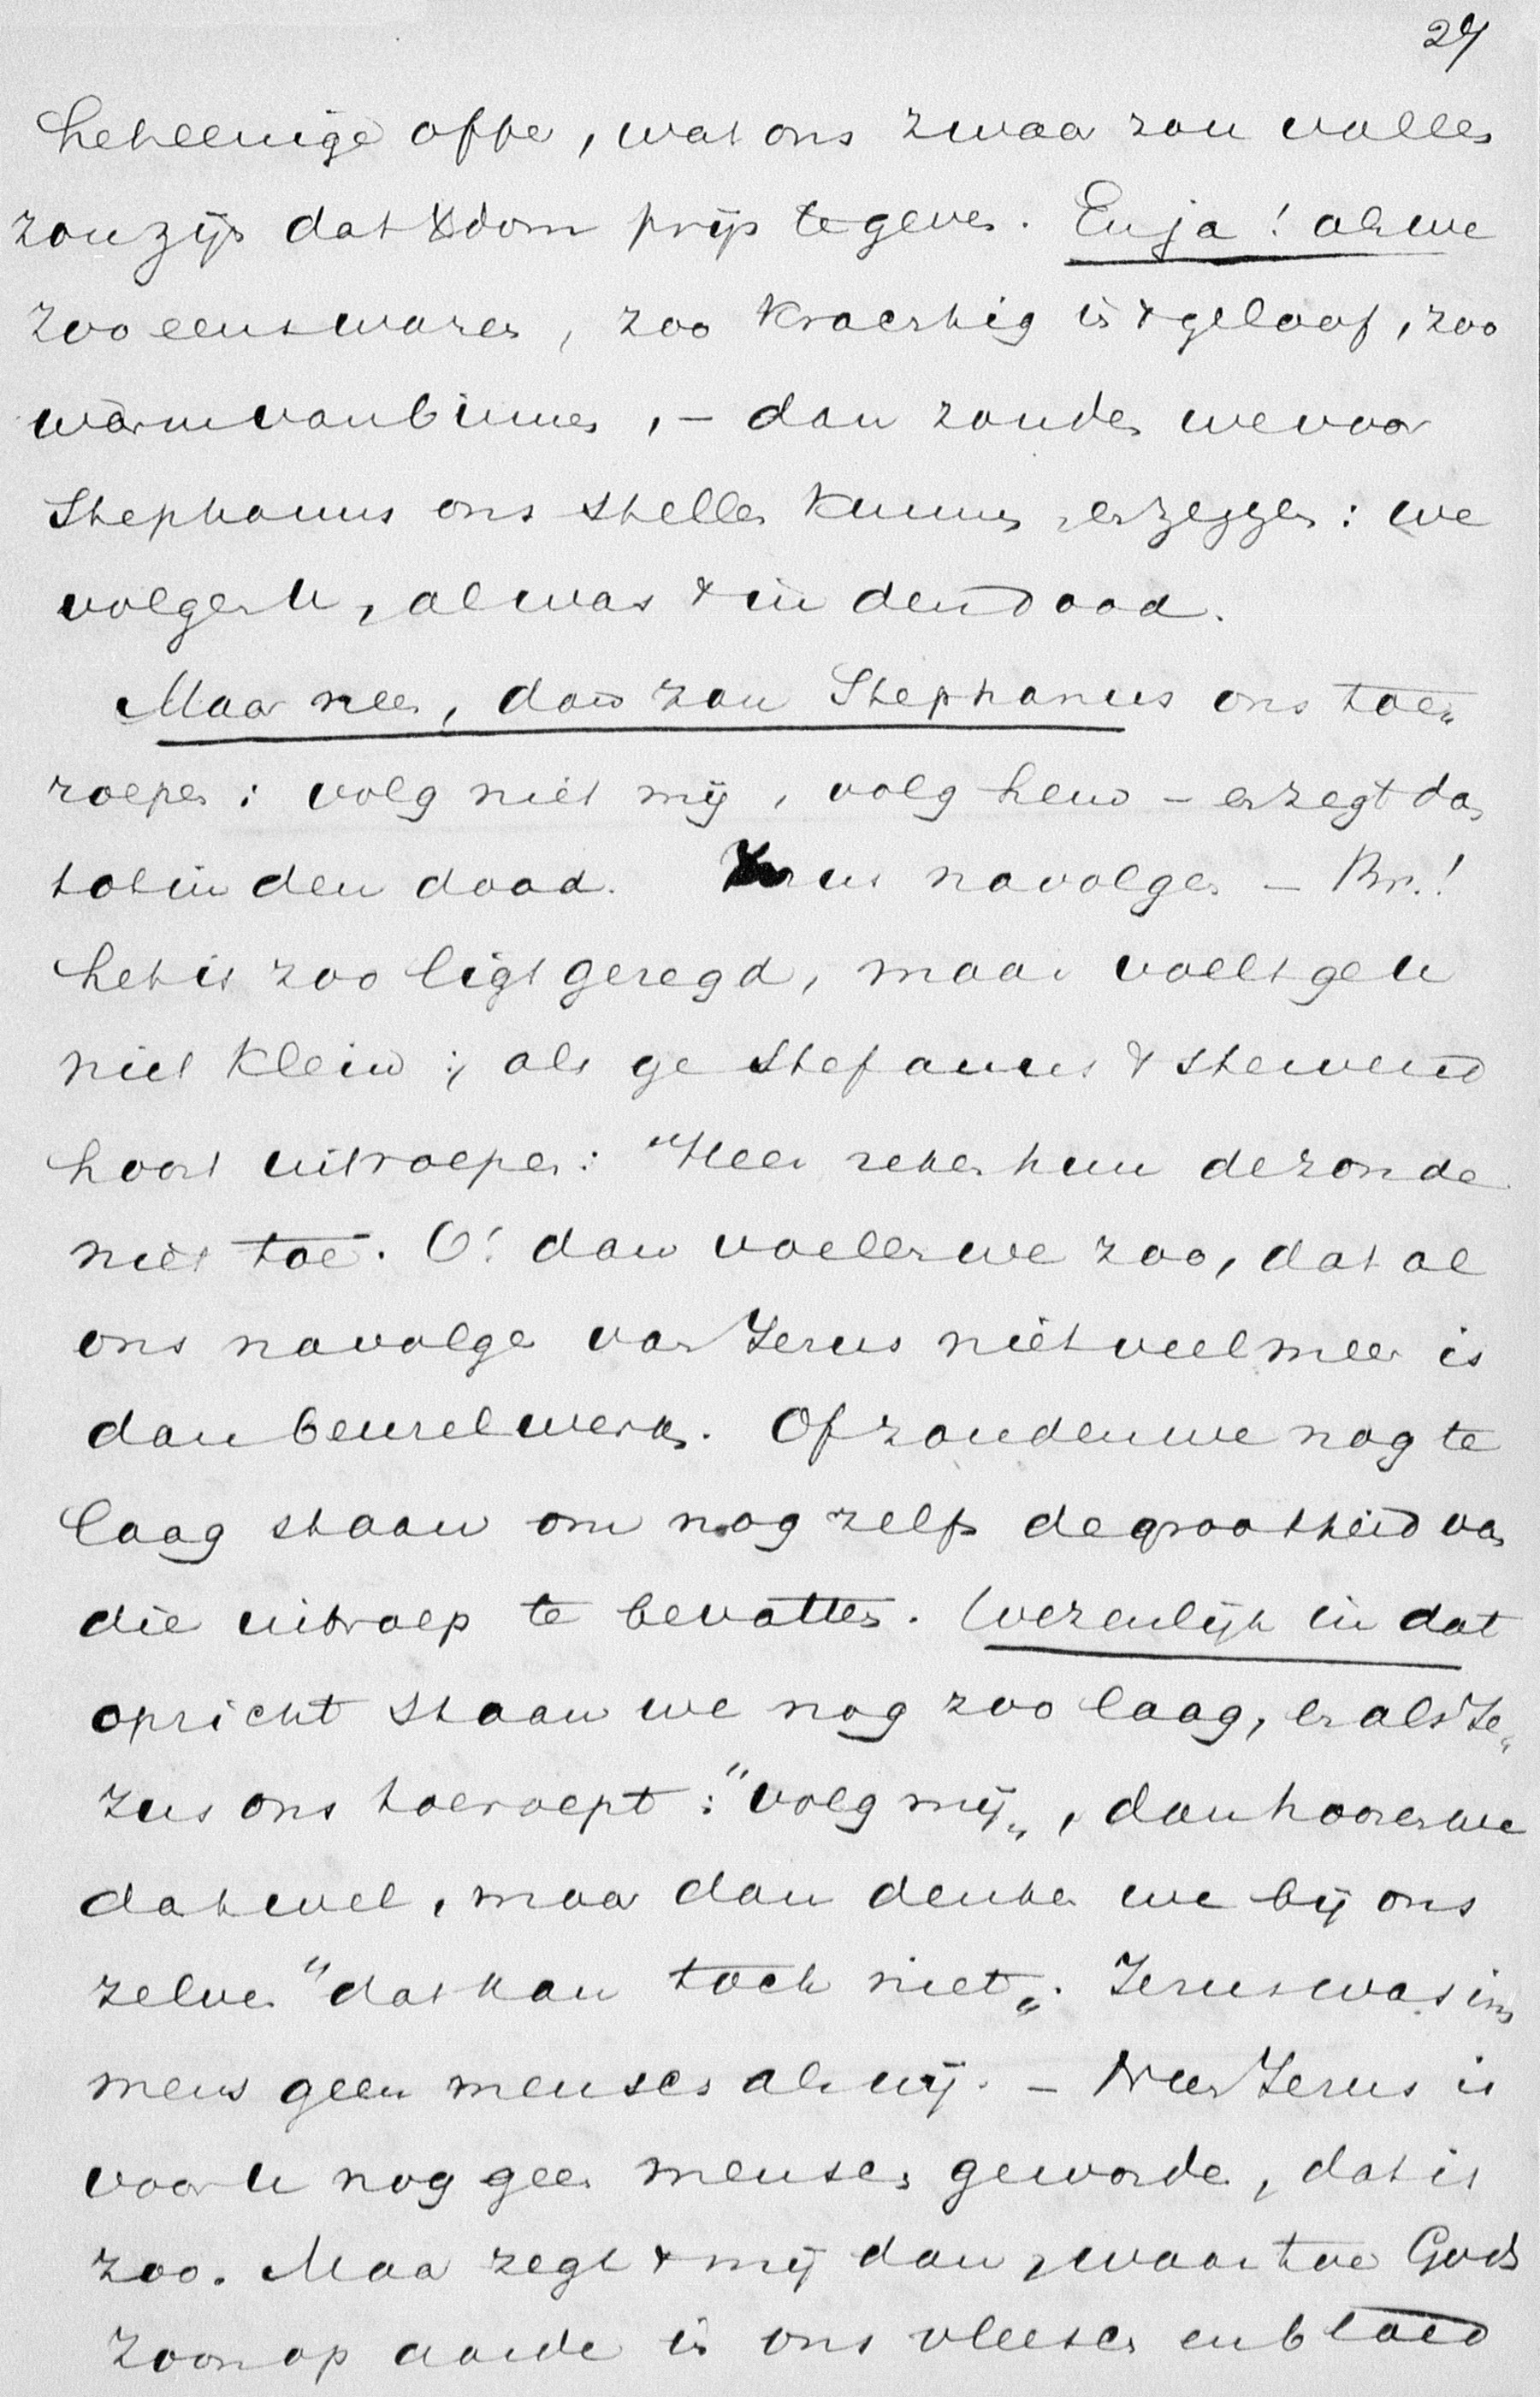 27
het eenige offer, wat ons zwaar zou vallen
zou zijn dat & dom prijs te geven. En ja! als we
zoo eens waren, zoo krachtig in 't geloof, zoo
warm van binnen, – dan zouden we voor
Stephanus ons stellen kunnen en zeggen: we
volgen U, al was 't in den dood.
Maar neen, dan zou Stephanus ons toe„
roepen: volg niet mij, volg hem – en zegt dan
tot in den dood. Jezus navolgen – Br.!
het is zoo ligt gezegd, maar voelt ge U
niet klein, als ge Stefanus 't stervend
hoort uitroepen: "Heer reken hun de zonde
niet toe. O! dan voelen we zoo, dat al
ons navolgen van Jezus niet veel meer is
dan beuzelwerk. Of zouden we nog te
laag staan om nog zelfs de grootheid van
die uitroep te bevatten. Wezenlijk in dat
opzicht staan we nog zoo laag, en als Je„
zus ons toeroept: "volg mij„, dan hooren we
dat wel, maar dan denken we bij ons
zelven "dat kan toch niet„. Jezus was im
mers geen mensch als wij. – Neen Jezus is
voor U nog geen mensch geworden, dat is
zoo. Maar zegt 't mij dan, waartoe Gods
zoon op aarde in ons vleesch en bloed